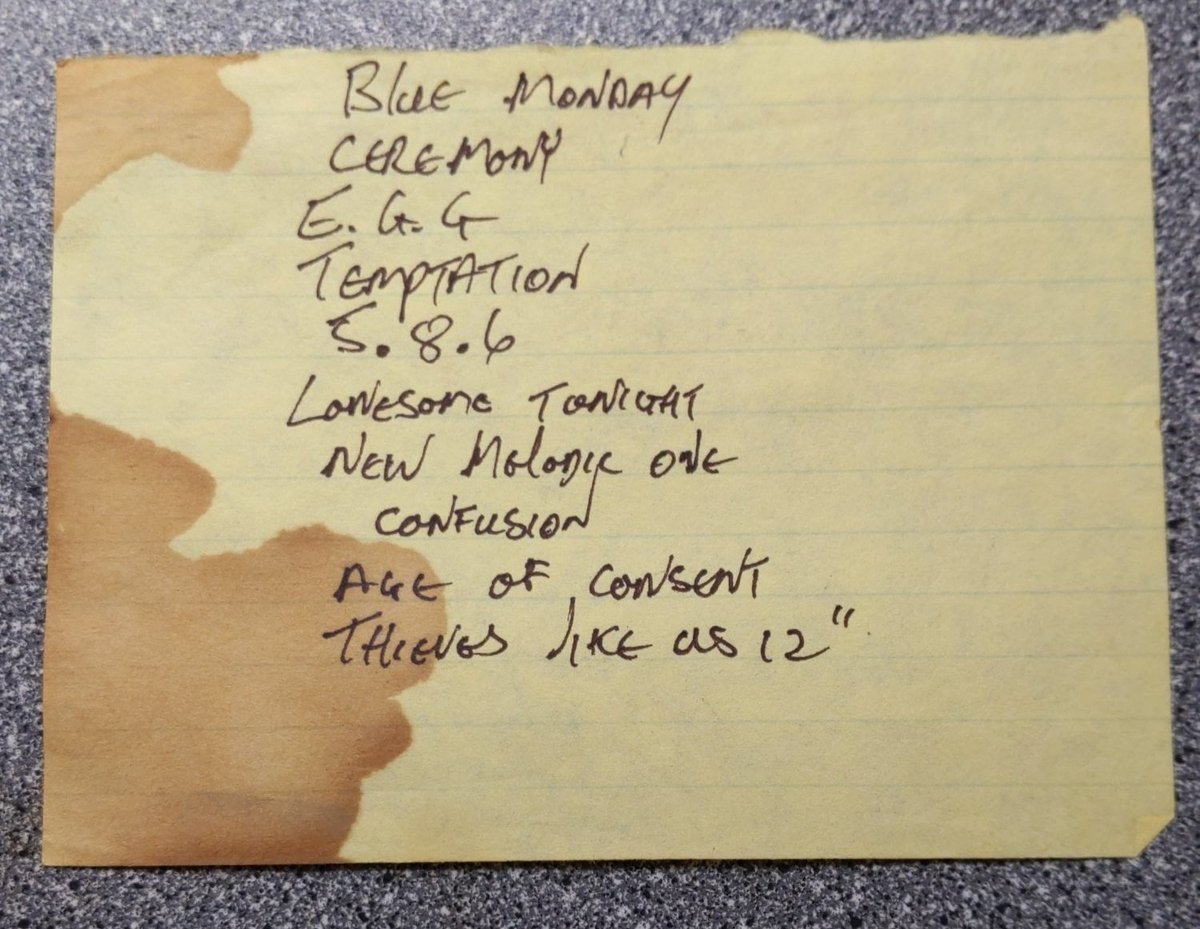 BLUE MONDAY
CEREMONY
E.G.G
TEMPTATION
5.8.6
LONESOME TONIGHT
NEW MELODIC ONE
CONFUSION
AGE OF CONSENT
THIEVES LIKE US 12"